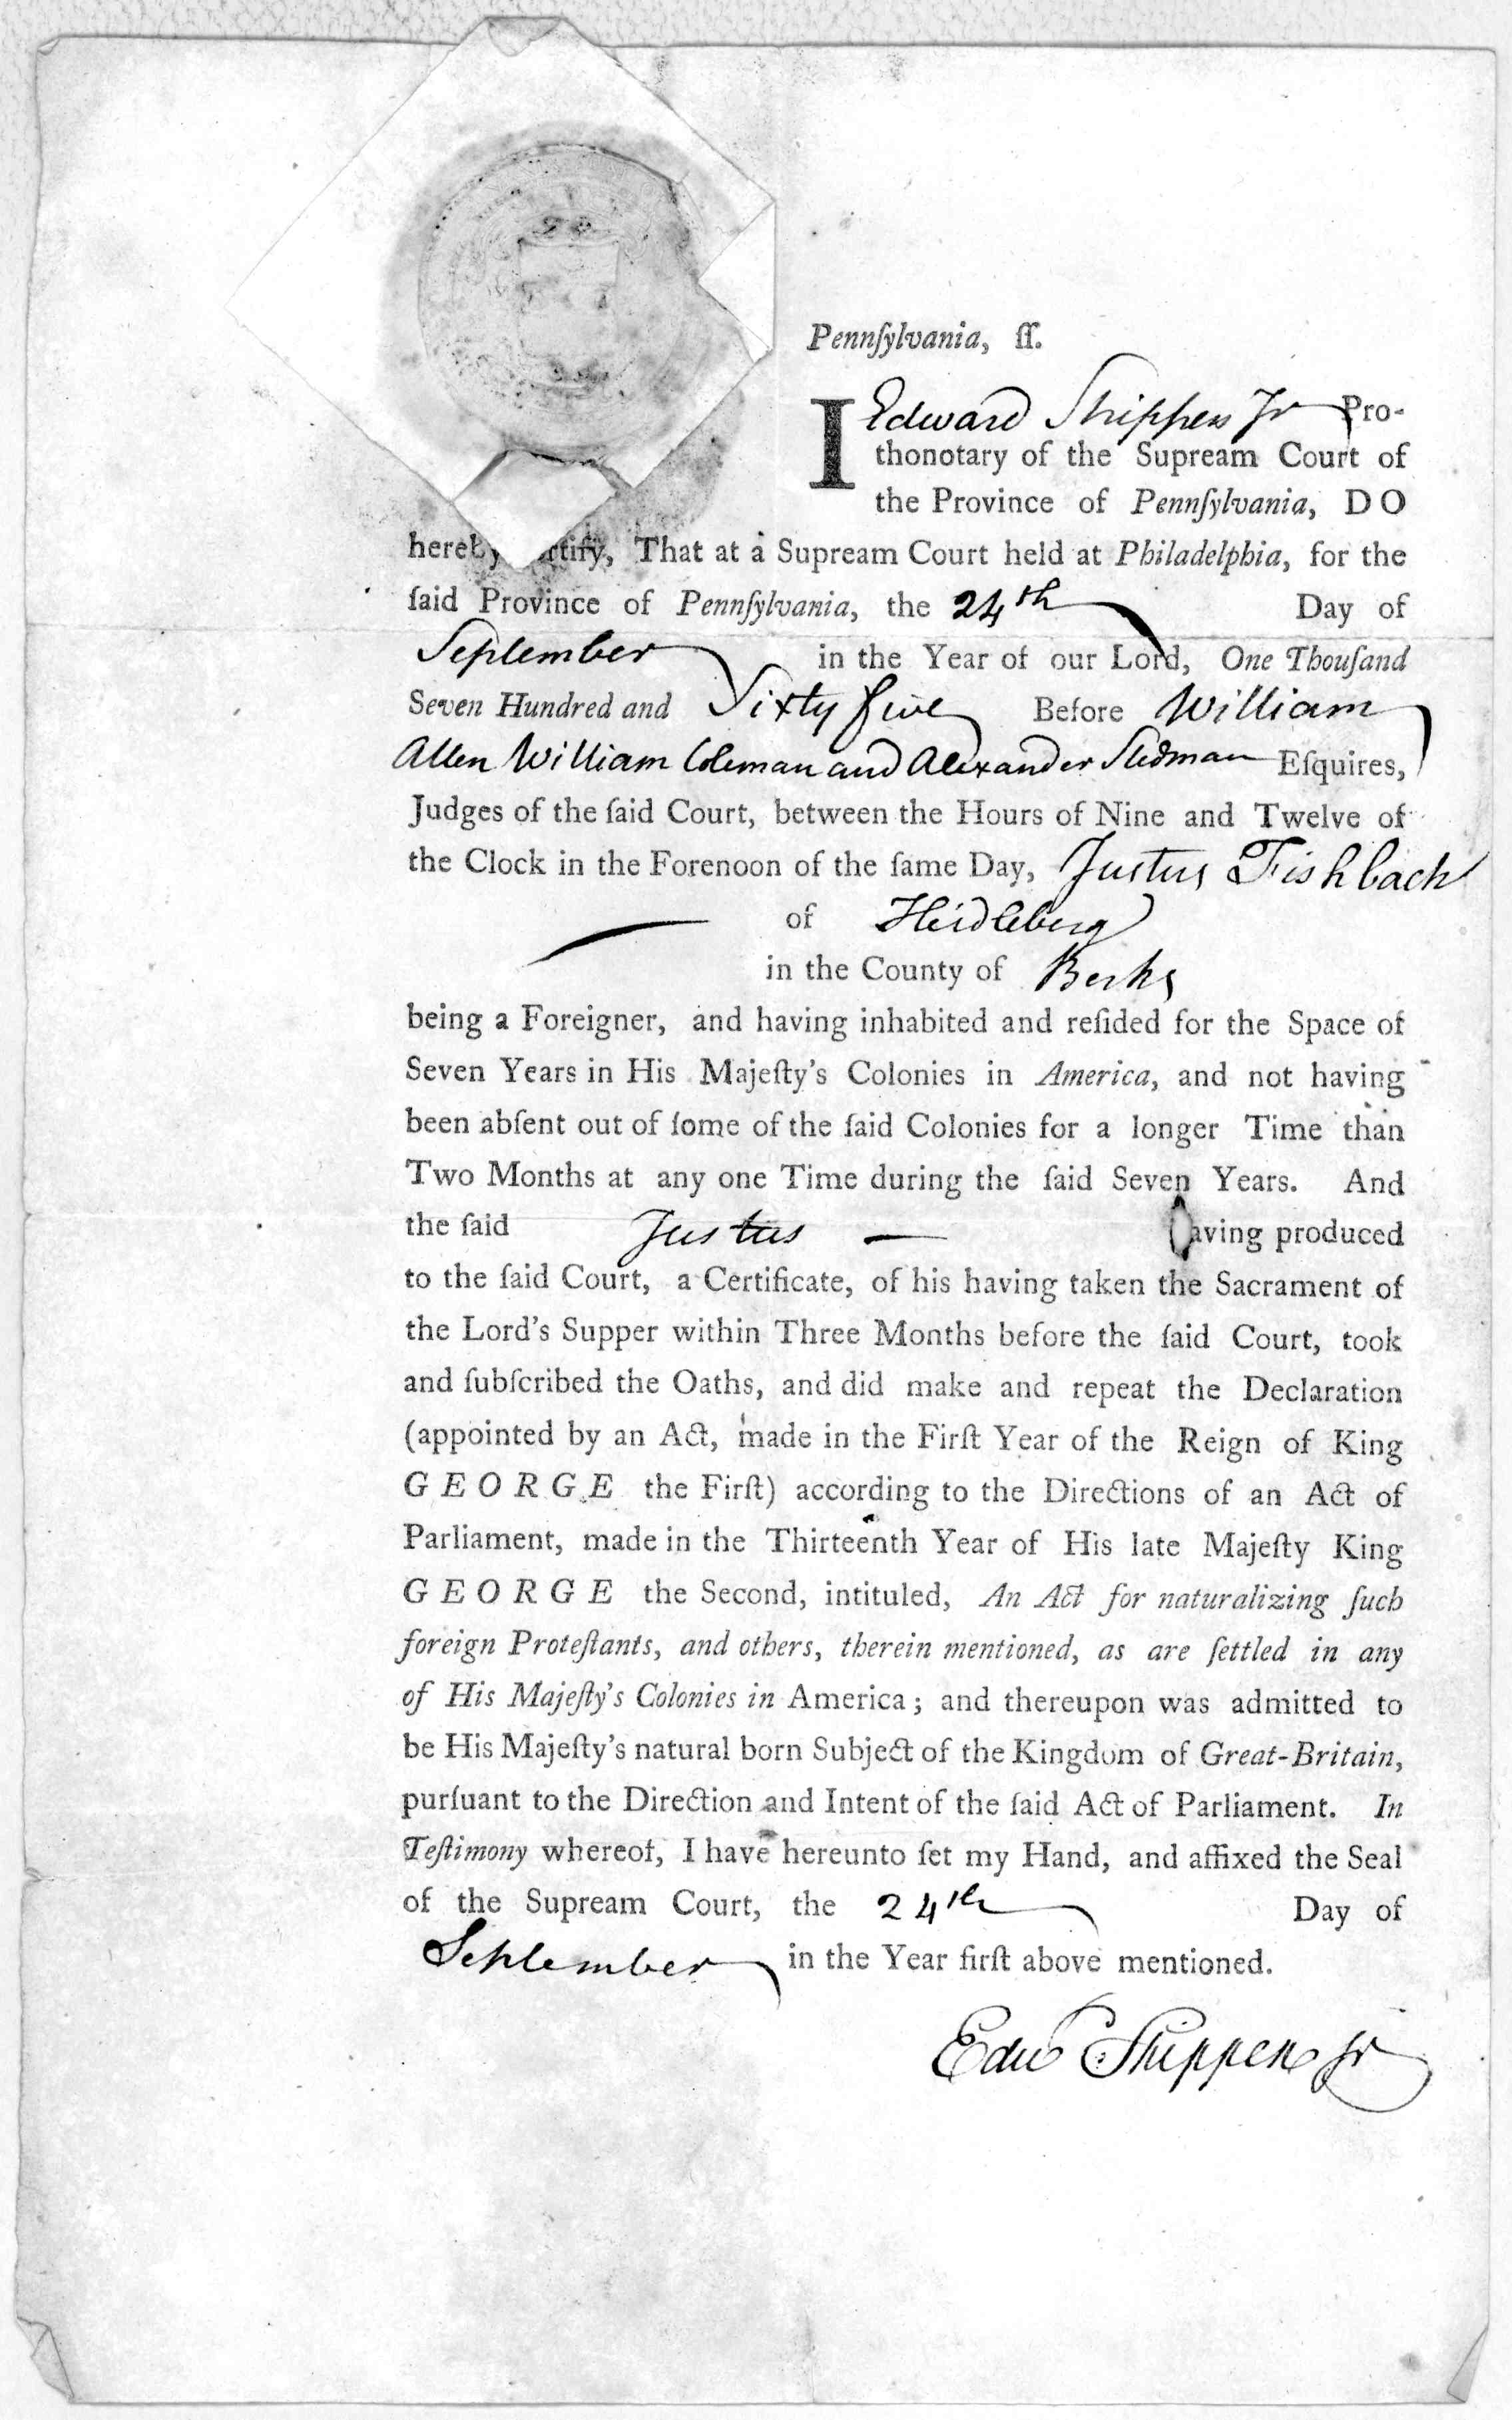 Pennſylvania, ſſ.
I Edward Shippen Jr Pro-
thonotary of the Supream Court of
the Province of Pennſylvania, DO
hereby rtify, That at a Supream Court held at Philadelphia, for the
ſaid Province of Pennſylvania, the 24th Day of
September in the Year of our Lord, One Thouſand
Seven Hundred and Sixty five Before William
Allen William Coleman and Alexander Stedman Eſquires,
Judges of the ſaid Court, between the Hours of Nine and Twelve of
the Clock in the Forenoon of the ſame Day, Justus Fishbach
of Heidleberg
in the County of Berks
being a Foreigner, and having inhabited and reſided for the Space of
Seven Years in His Majeſty's Colonies in America, and not having
been abſent out of ſome of the ſaid Colonies for a longer Time than
Two Months at any one Time during the ſaid Seven Years. And
the ſaid Justus — aving produced
to the ſaid Court, a Certificate, of his having taken the Sacrament of
the Lord's Supper within Three Months before the ſaid Court, took
and ſubſcribed the Oaths, and did make and repeat the Declaration
(appointed by an Act, made in the Firſt Year of the Reign of King
GEORGE the Firſt) according to the Directions of an Act of
Parliament, made in the Thirteenth Year of His late Majeſty King
GEORGE the Second, intituled, An Act for naturalizing ſuch
foreign Proteſtants, and others, therein mentioned, as are ſettled in any
of His Majeſty's Colonies in America; and thereupon was admitted to
be His Majeſty's natural born Subject of the Kingdom of Great-Britain,
purſuant to the Direction and Intent of the ſaid Act of Parliament. In
Teſtimony whereof, I have hereunto ſet my Hand, and affixed the Seal
of the Supream Court, the 24th Day of
September in the Year firſt above mentioned.
Edw Shippen Jr